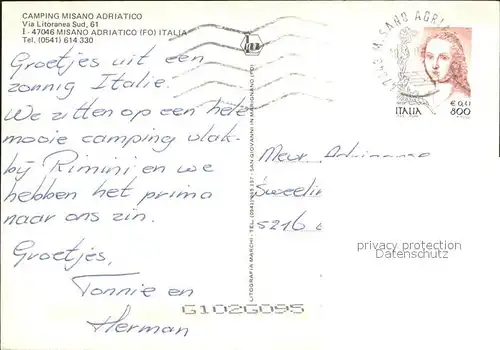 CAMPING MISANO ADRIATICO
Via Litoranea Sud, 61
I - 47046 MISANO ADRIATICO (FO) ITALIA
Tel. (0541) 614 330
Groetjes uit een
zonnig Italie.
We zitten op een hele
mooie camping vlak-
bij Rimini en we
hebben het prima
naar ons zin.
Groetjes,
Tonnie en
Herman
G102G095
47046 MISANO ADRIA
€ 0,41
ITALIA 800
Mevr. Adrianus
Sweelin
5216
privacy protection
Datenschutz
LITOGRAFIA MARCHI - TEL. SAN GIOVANNI IN MARIGNANO (FO)